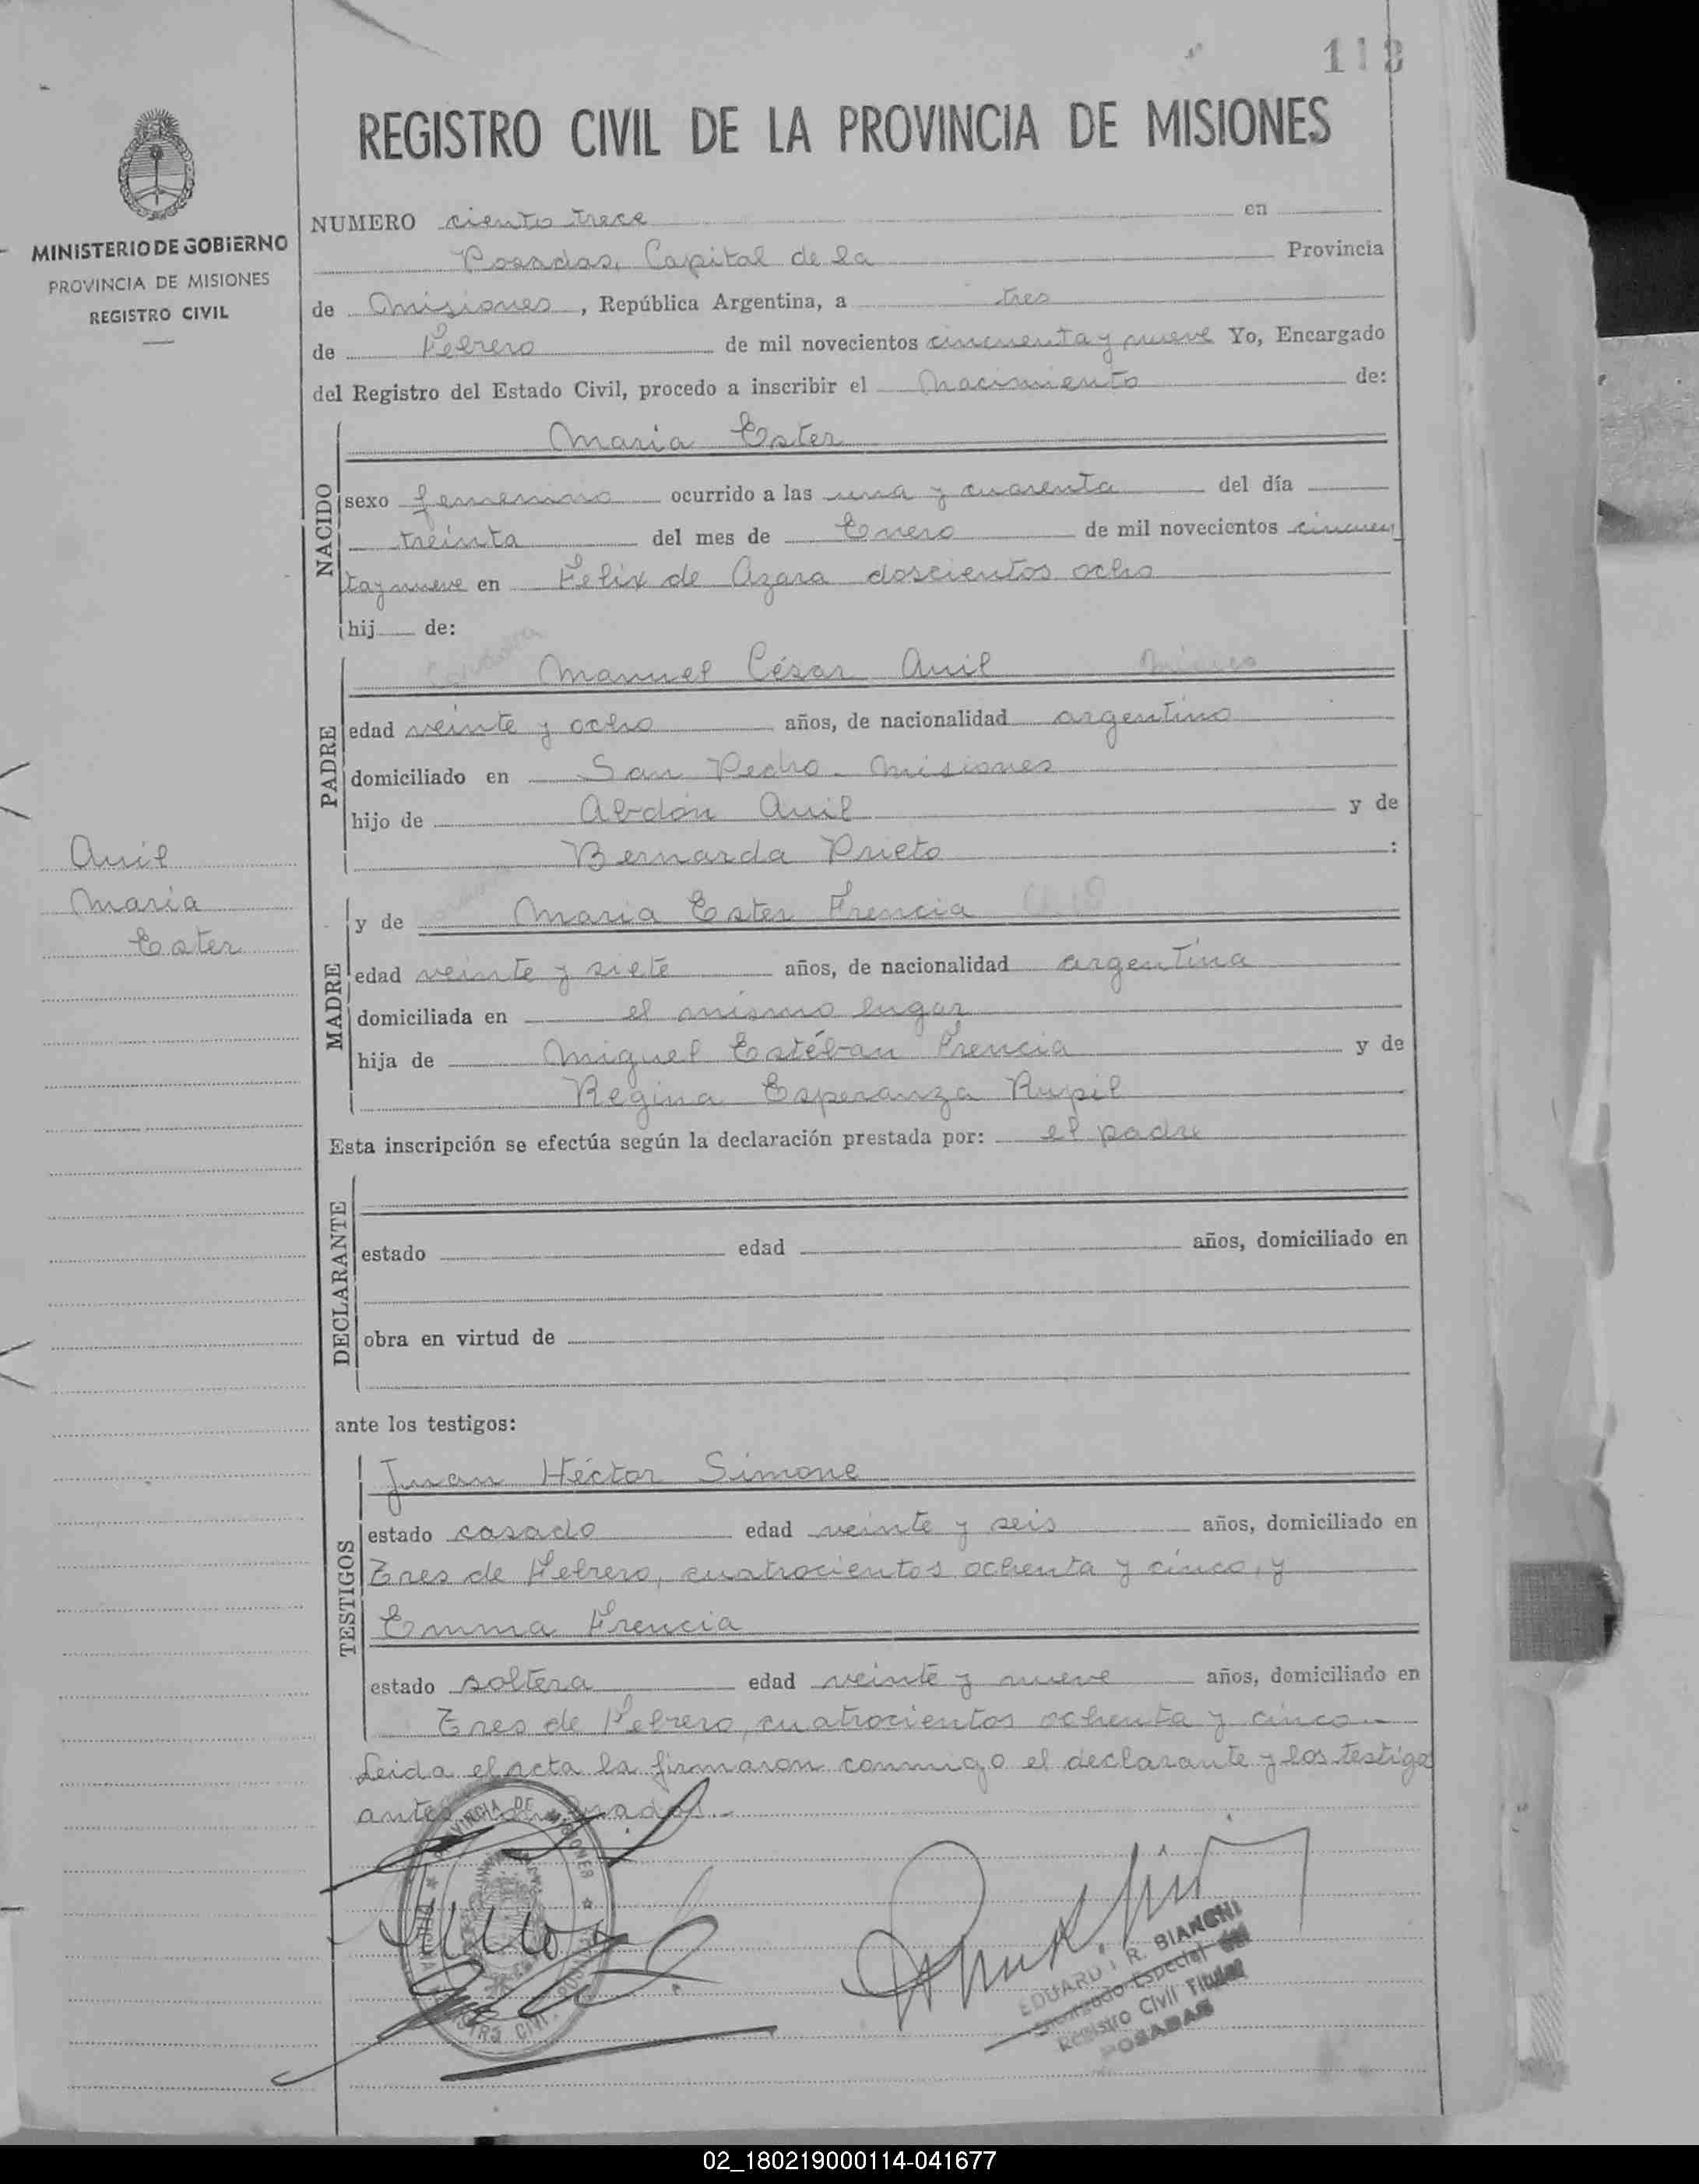 118
REGISTRO CIVIL DE LA PROVINCIA DE MISIONES
MINISTERIO DE GOBIERNO
PROVINCIA DE MISIONES
REGISTRO CIVIL
NUMERO ciento trece en
Posadas, Capital de la Provincia
de Misiones, República Argentina, a tres
de Febrero de mil novecientos cincuenta y nueve Yo, Encargado
del Registro del Estado Civil, procedo a inscribir el Nacimiento de:
NACIDO
Maria Ester
sexo femenino ocurrido a las una y cuarenta del día
treinta del mes de Enero de mil novecientos cincuen
ta y nueve en Felix de Azara doscientos ocho
hij de:
PADRE
Manuel César Avil
edad veinte y ocho años, de nacionalidad argentino
domiciliado en San Pedro - Misiones
hijo de Abdón Avil y de
Bernarda Prieto :
Avil
Maria
Ester
MADRE
y de Maria Ester Frencia
edad veinte y siete años, de nacionalidad argentina
domiciliada en el mismo lugar
hija de Miguel Estéban Frencia y de
Regina Esperanza Rupil
Esta inscripción se efectúa según la declaración prestada por: el padre
DECLARANTE
estado edad años, domiciliado en
obra en virtud de
ante los testigos:
TESTIGOS
Juan Héctor Simone
estado casado edad veinte y seis años, domiciliado en
Tres de Febrero, cuatrocientos ochenta y cinco, y
Emma Frencia
estado soltera edad veinte y nueve años, domiciliado en
Tres de Febrero, cuatrocientos ochenta y cinco.-
Leida el acta la firmaron conmigo el declarante y los testigo
antes
PROVINCIA DE MISIONES
REGISTRO CIVIL
EDUARDO R. BIANCHI
Encargado Especial del
Registro Civil Titular
POSADAS
02_180219000114-041677